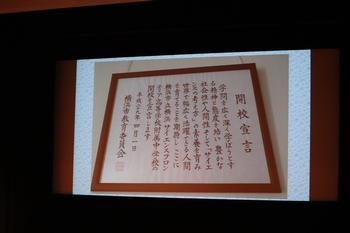 開校宣言
学問を広く深く学ぼうとす
る精神と態度を培い豊かな
社会性や人間性そして「サイエ
ンスの考え方」の育養を育み
世界で幅広く活躍できる人間
を育てることを期待しここに
横浜市立横浜サイエンスフロン
ティア高等学校附属中学校の
開校を宣言します
平成二十九年四月一日
横浜市教育委員会